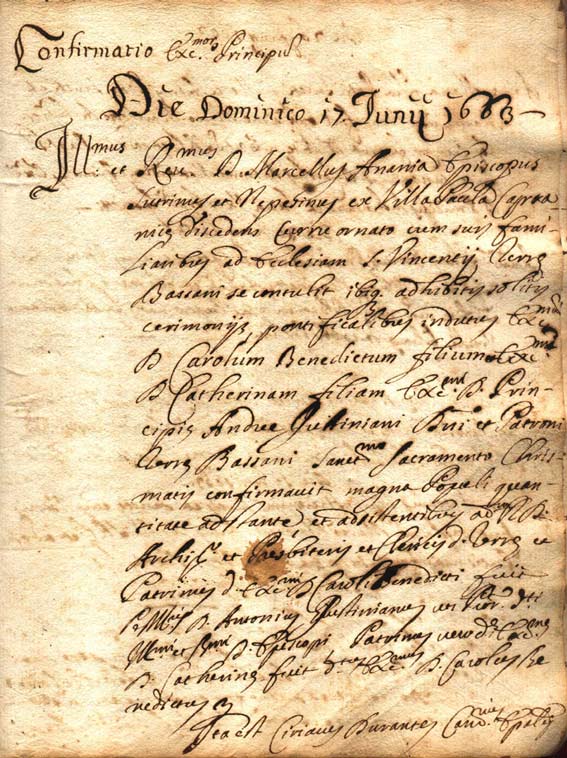 Confirmatio Exc.mor Principum
Die Dominico 17 Junij 1683
Ill.mus et Reu.mus D. Marcellus Anania Episcopus
Sutrinus et Nepesinus ex Villa Paula Capra
nice discedens Curru ornato cum suis fami-
liaribus ad Ecclesiam S. Vincentij Terre
Bassani se contulit ibiq. adhibitis solitis
cerimonijs, pontificalibus indutus Exc.mum
D. Carolum Benedictum filium et Exc.mam
D. Catherinam filiam Exc.mi D. Prin-
cipis Andree Justiniani Dni et Patroni
Terre Bassani Sanct.mo Sacramento Chris-
matis confirmauit magna Populi quan-
titate adstante et adsistentibus adm. RR. DD.
Archip.r et Presbiteris et Clericis d. Terre
Patrinus d. Exc.mi D. Caroli Benedicti fuit
D. Antonius Justinianus
Ill.mi et Reu.mi D. Episcopi Patrinus vero d. Exc.me
D. Catherine fuit d.tus Exc.mus D. Carolus Be
nedictus
Ita est Ciriacus Durantes Canc.rius Ep.alis